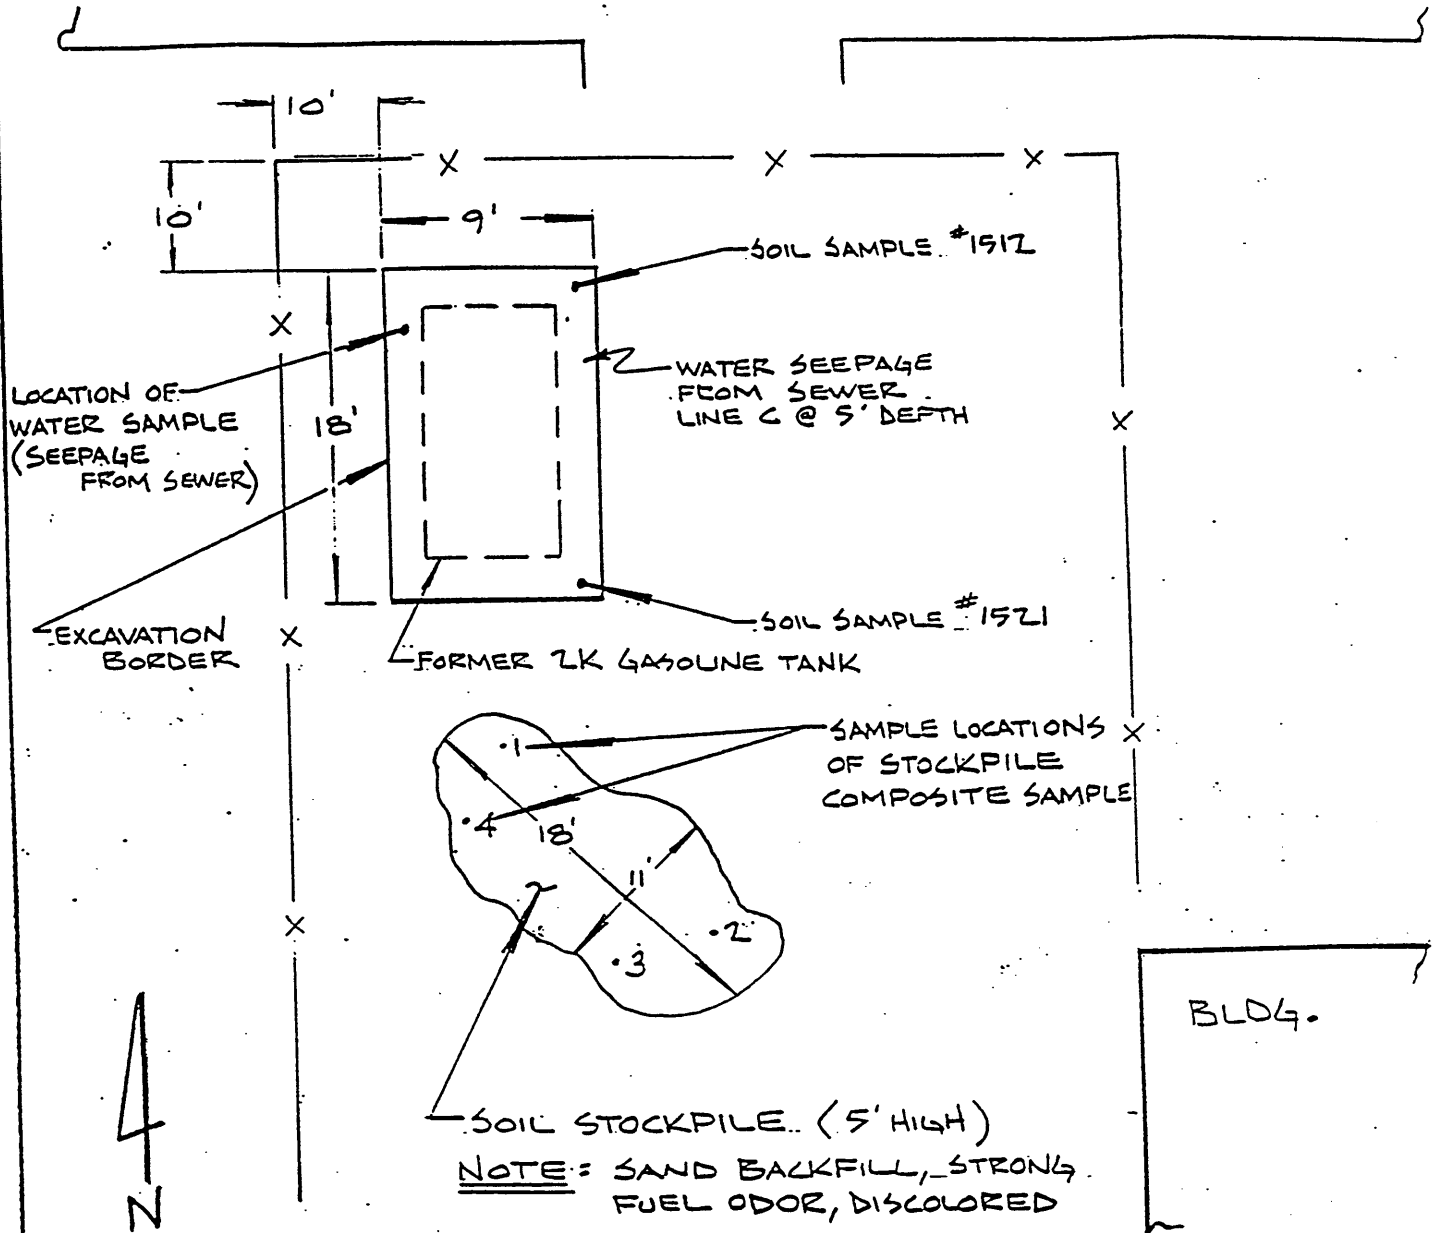 10'
10'
9'
SOIL SAMPLE #1512
LOCATION OF
WATER SAMPLE
(SEEPAGE
FROM SEWER)
18'
WATER SEEPAGE
FROM SEWER
LINE C @ 5' DEPTH
EXCAVATION
BORDER
SOIL SAMPLE #1521
FORMER 2K GASOLINE TANK
SAMPLE LOCATIONS
OF STOCKPILE
COMPOSITE SAMPLE
1
4
18'
11'
2
3
BLDG.
SOIL STOCKPILE (5' HIGH)
NOTE: SAND BACKFILL, STRONG
FUEL ODOR, DISCOLORED
N